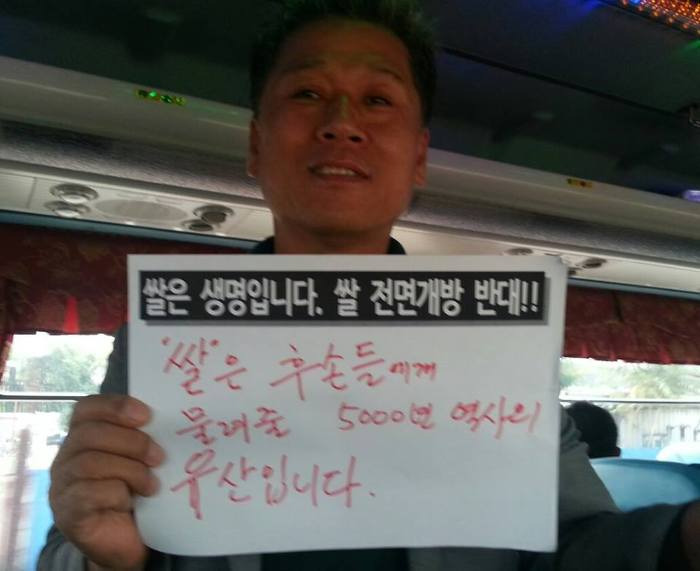 쌀은 생명입니다. 쌀 전면개방 반대!!
"쌀"은 후손들에게
물려줄 5000년 역사의
유산입니다.